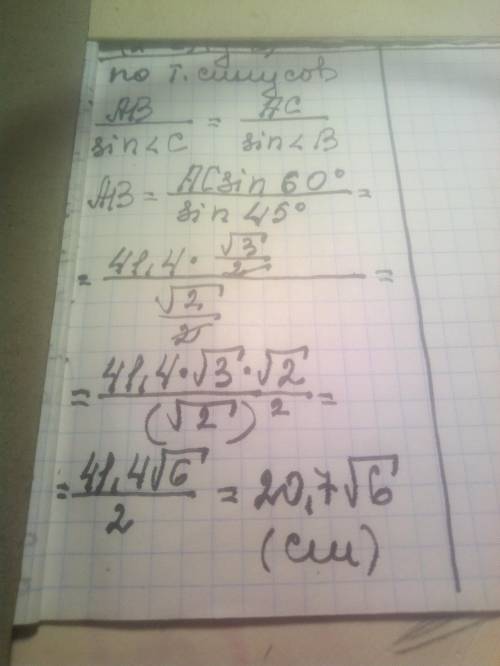 по т. синусов
AB/sin∠C = AC/sin∠B
AB = ACsin 60°/sin 45° =
= 41,4 · √3/2 / √2/2 =
= 41,4 · √3 · √2/(√2)² =
= 41,4√6/2 = 20,7√6
(см)